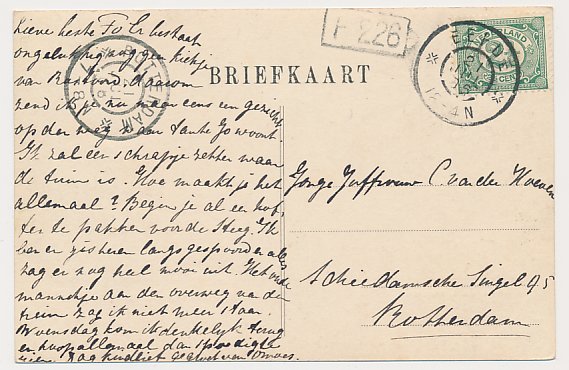 Lieve beste Fo. Er bestaat
ongelukkig nog geen kiekje
van Rustoord, daarom
zend ik je nu maar eens een gezicht
op den weg aan tante Jo woont.
Ik zal een schrapje zetten waar
de tuin is. Hoe maakt je het
allemaal? Begin je al een kof-
fer te pakken voor de Steeg. Ik
ben er gisteren langs gespoord en alles
zag er nog heel mooi uit. Het oude
mannetje aan den overweg van den
trein zag ik niet meer staan.
Woensdag kom ik denkelijk terug
en hoop allemaal dan spoedig te
zien. Dag kindlief
BRIEFKAART
F 226
EELDE
NEDERLAND
CENT
12-4 N
ROTTERDAM
Jonge Juffrouw C. van der Hoeven
Schiedamsche Singel 95
Rotterdam